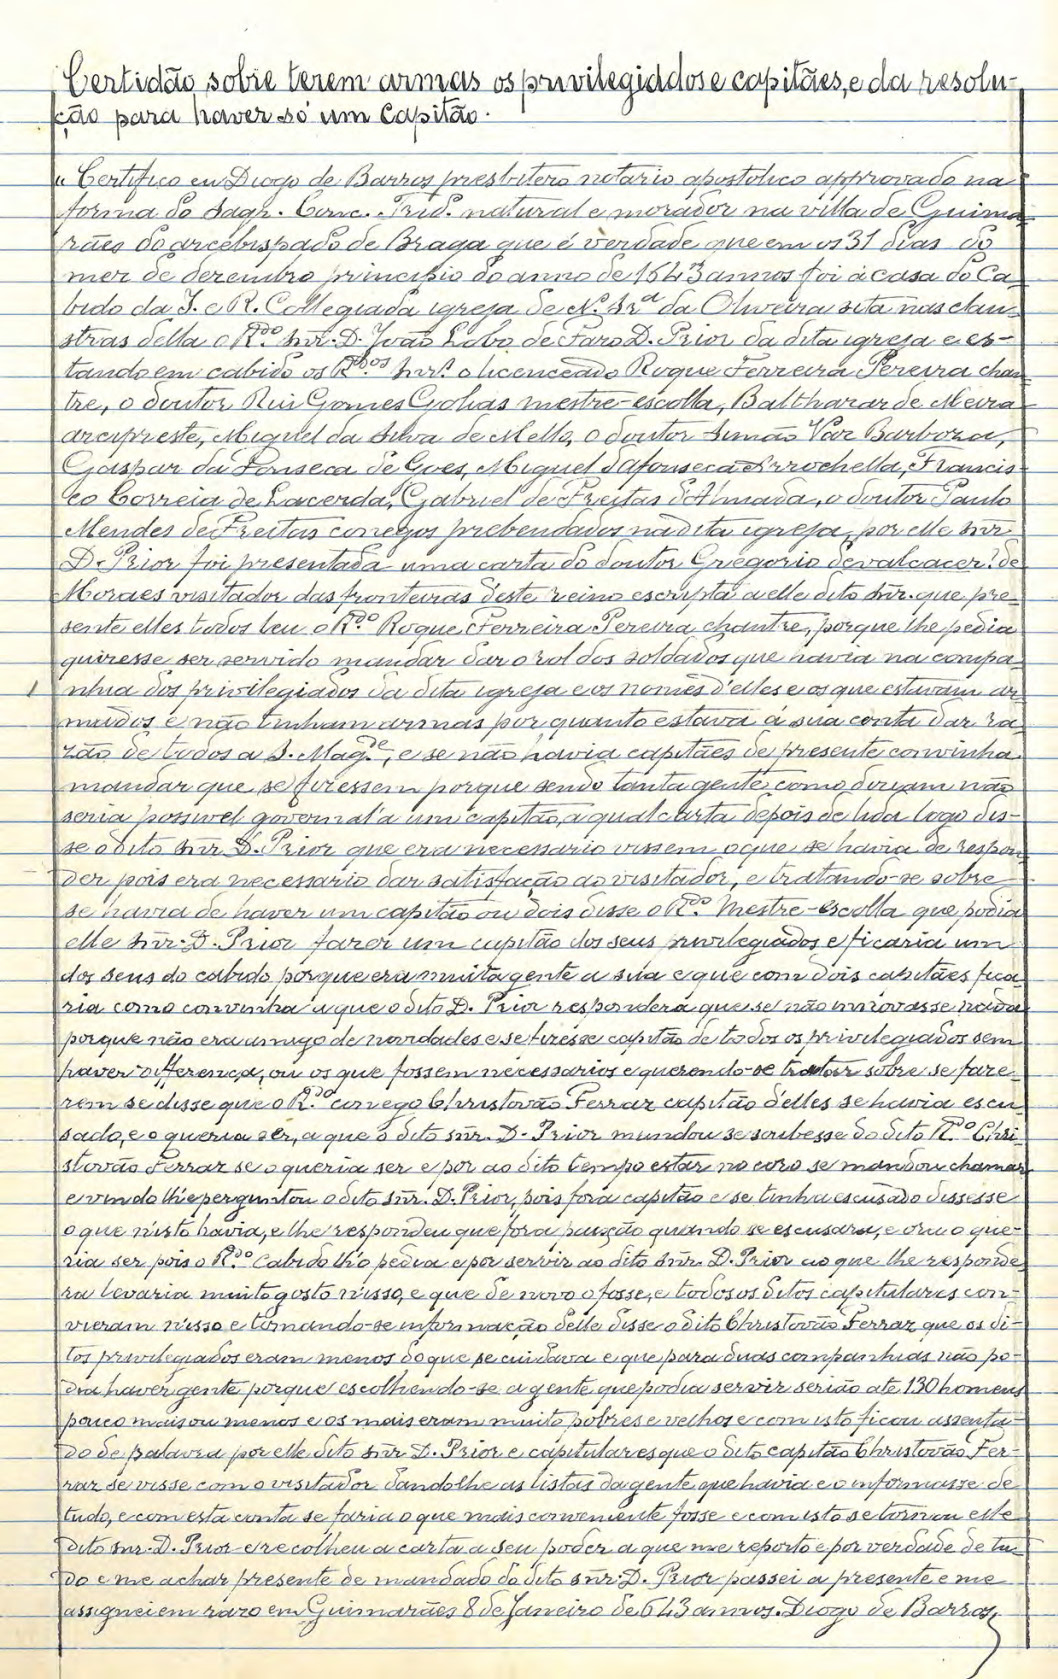 Certidão sobre terem armas os privilegiados e capitães, e da resolu-
ção para haver só um Capitão.
"Certifico eu Diogo de Barros presbitero notario apostolico approvado na
forma do Sagr. Conc. Trid. natural e morador na villa de Guima-
rães do arcebispado de Braga que é verdade que em os 31 dias do
mez de dezembro principio do anno de 1643 annos foi á casa do Ca-
bido da I. e R. Collegiada igreja de N.ª Sr.ª da Oliveira sita nas claus-
stras della o R.do snr. D. João Lobo de Faro D. Prior da dita igreja e es-
tando em cabido os R.dos snr.s o licenceado Roque Ferreira Pereira chan-
tre, o doutor Rui Gomes Golias mestre-escolla, Balthazar de Meira
arcipreste, Miguel da Silva de Mello, o doutor Simão Vaz Barboza,
Gaspar da Fonseca de Goes, Miguel d'Afonseca Arrochella, Francis-
co Correia de Lacerda, Gabriel de Freitas d'Almada, o doutor Paulo
Mendes de Freitas conegos prebendados na dita igreja, por elle snr
D. Prior foi presentada uma carta do doutor Gregorio de valcacer? de
Moraes visitador das fronteiras d'este reino escripta a elle dito snr. que pre-
sente elles todos leu o R.do Roque Ferreira Pereira chantre, porque lhe pedia
quizesse ser servido mandar dar o rol dos soldados que havia na compa-
nhia dos privilegiados da dita igreja e os nomes d'elles e os que estavam ar-
mados e não tinham armas por quanto estava á sua conta dar ra-
zão de todos a S. Mag.de, e se não havia capitães de presente convinha
mandar que se fizessem porque sendo tanta gente como diziam não
seria possivel governal'a um capitão, a qual carta depois de lida logo dis-
se o dito snr D. Prior que era necessario vissem o que se havia de respon-
der pois era necessario dar satisfação ao visitador, e tratando-se sobre
se havia de haver um capitão ou dois disse o R.do Mestre-escolla que podia
elle snr. D. Prior fazer um capitão dos seus privilegiados e ficaria um
dos seus do cabido porque era muita gente a sua e que com dois capitães fica-
ria como convinha a que o dito D. Prior respondera que se não innovasse nada
porque não era amigo de novidades e se fizesse capitão de todos os privilegiados sem
haver differença, ou os que fossem necessarios e querendo-se tratar sobre se faze-
rem se disse que o R.do conego Christovão Ferraz capitão d'elles se havia escu-
sado, e o queria ser, a que o dito snr. D. Prior mandou se soubesse do dito R.do Chri-
stovão Ferraz se o queria ser e por ao dito tempo estar no coro se mandou chamar
e vindo lhe perguntou o dito snr. D. Prior, pois fora capitão e se tinha escusado dissesse
o que n'isto havia, e lhe respondeu que fôra paixão quando se escusara, e ora o que-
ria ser pois o R.do Cabido lh'o pedia e por servir ao dito snr. D. Prior ao que lhe responde-
ra levaria muito gosto n'isso, e que de novo o fosse, e todos os ditos capitulares con-
vieram n'isso e tomando-se informação delle disse o dito Christovão Ferraz que os di-
tos privilegiados eram menos do que se cuidava e que para duas companhias não po-
dia haver gente porque escolhendo-se a gente que podia servir serião até 130 homens
pouco mais ou menos e os mais eram muito pobres e velhos e com isto ficou assenta-
do de palavra por elle dito snr D. Prior e capitulares que o dito capitão Christovão Fer-
raz se visse com o visitador dando lhe as listas da gente que havia e o informasse de
tudo, e com esta conta se faria o que mais conveniente fosse e com isto se tornou elle
dito snr. D. Prior e recolheu a carta a seu poder a que me reporto e por verdade de tu-
do e me achar presente de mandado do dito snr. D. Prior passei a presente e me
assignei em razo em Guimarães 8 de Janeiro de 643 annos. Diogo de Barros,